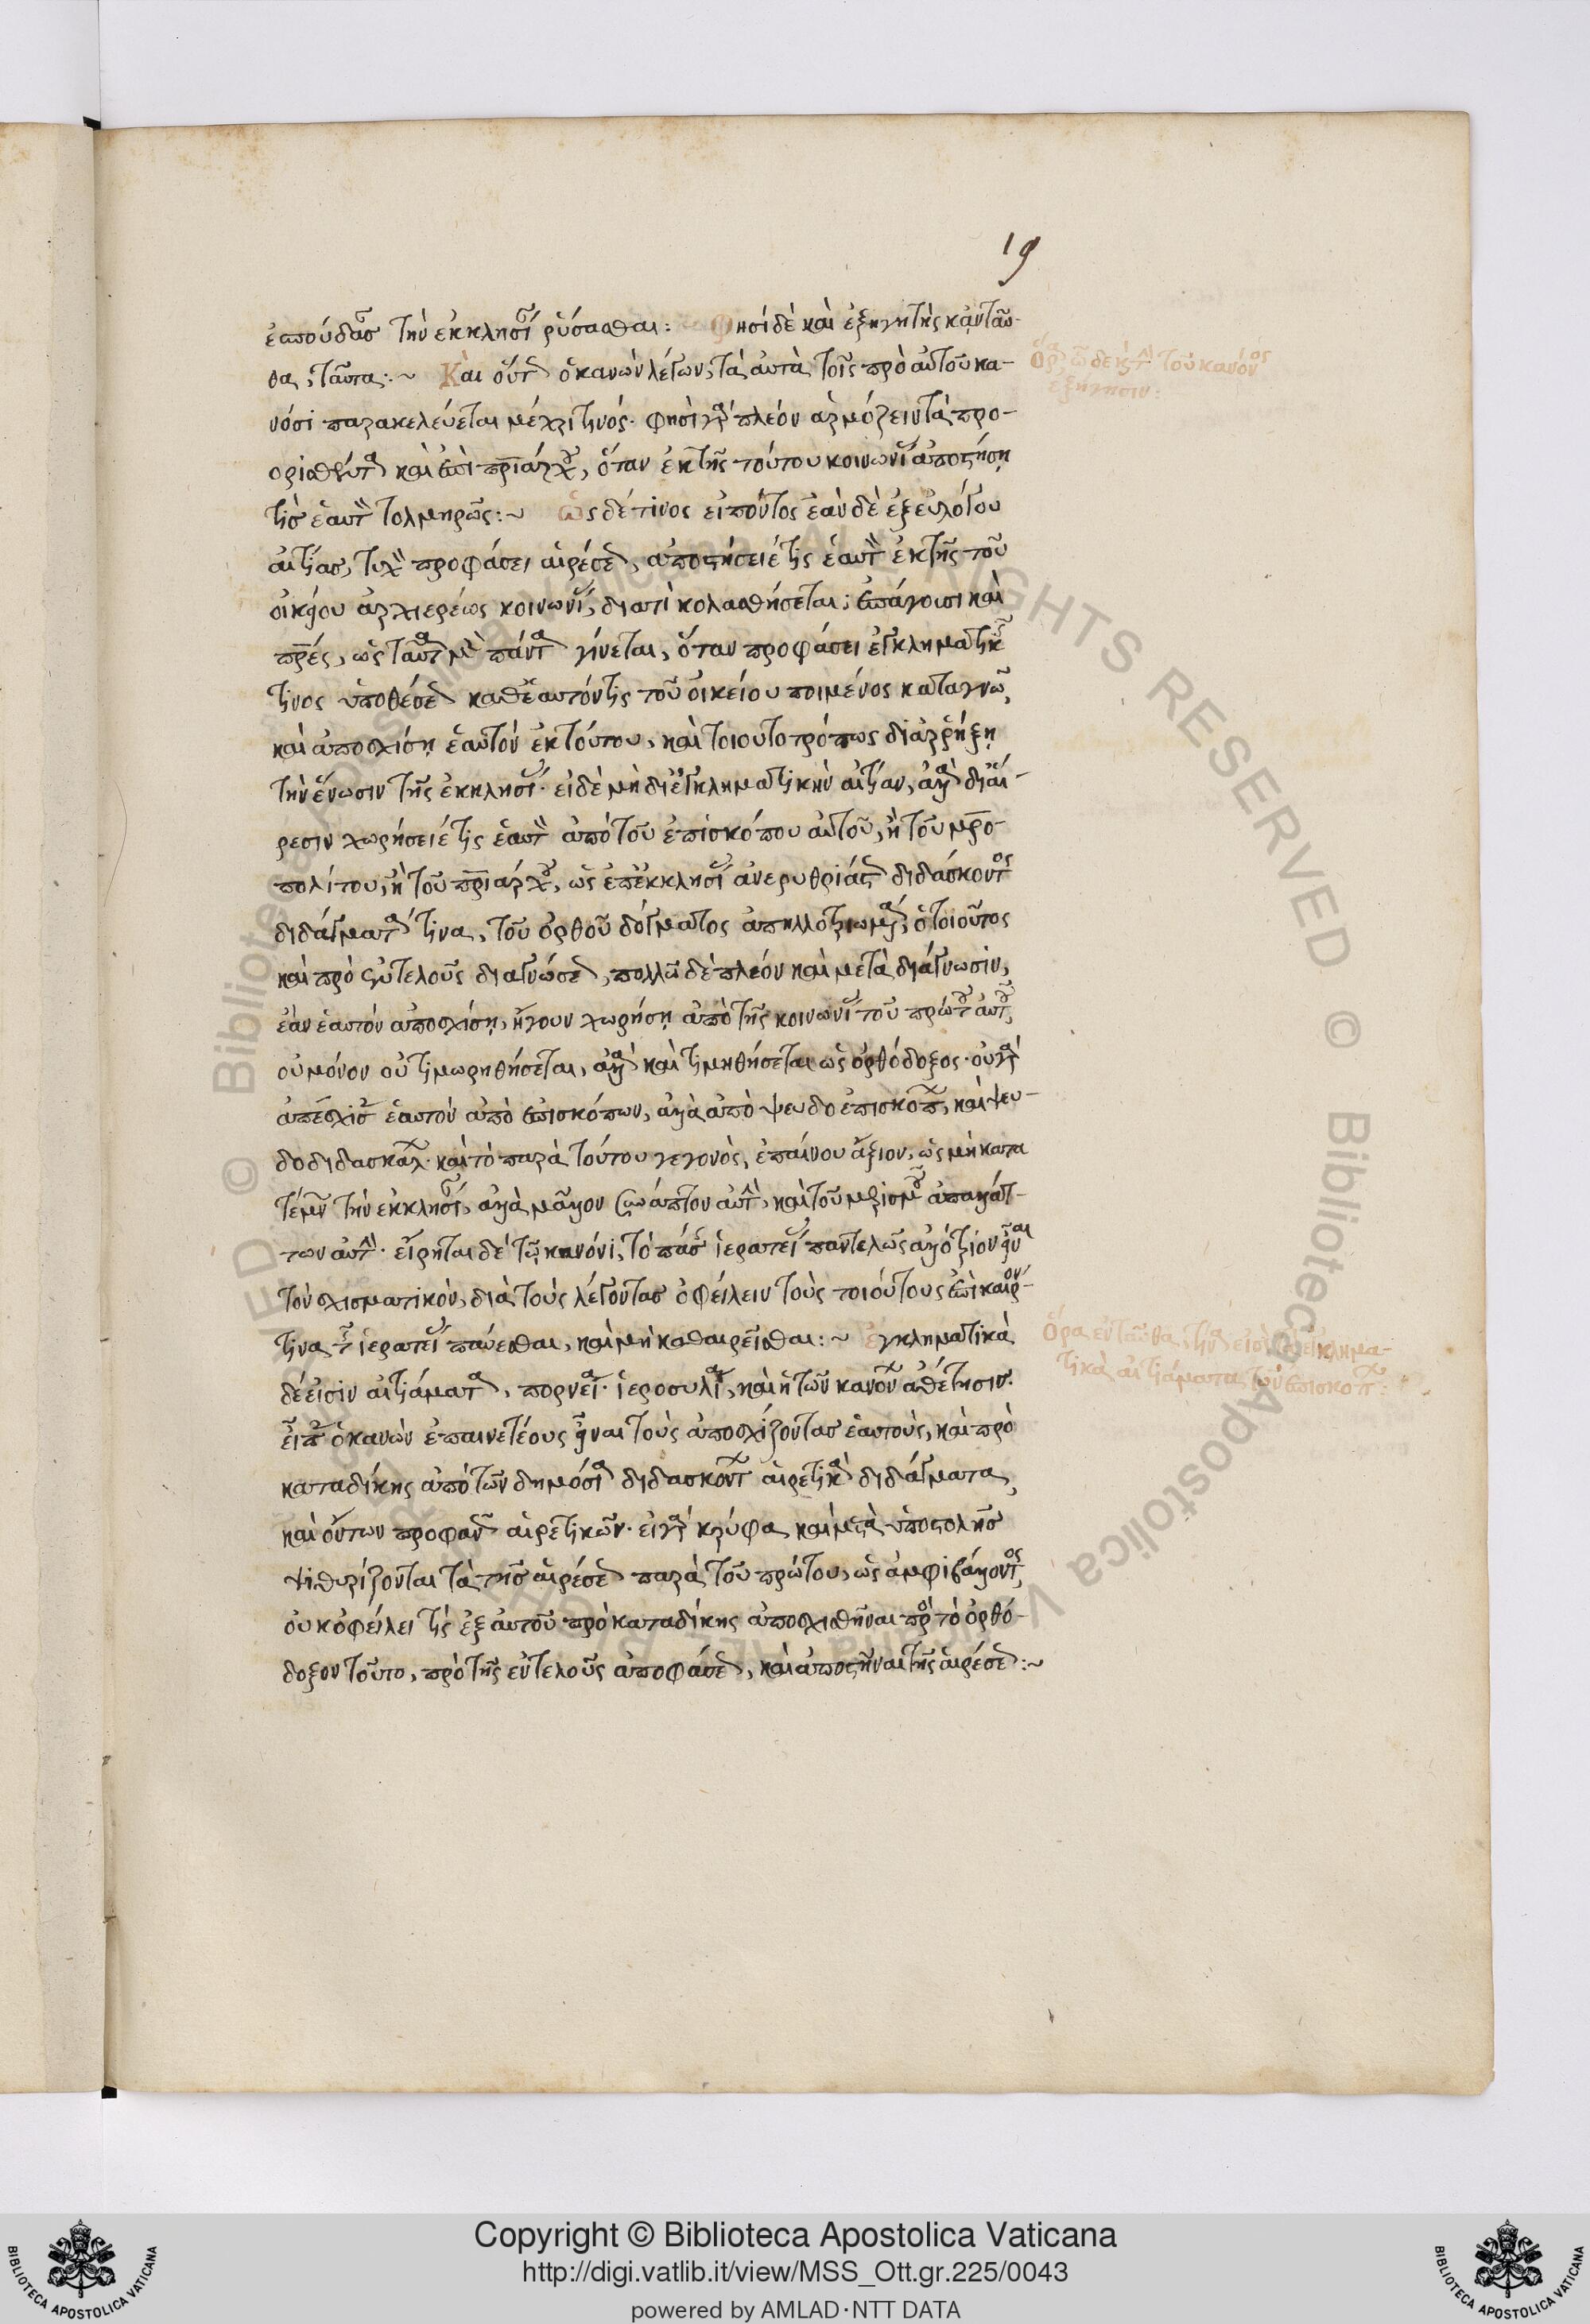 19
ἐσπούδασαν τὴν ἐκκλησίαν ῥύσασθαι: Φησὶ δὲ καὶ ἐξηγητὴς κἀνταῦ-
θα, ταῦτα:~ Καὶ οὗτος ὁ κανὼν λέγων, τὰ αὐτὰ τοῖς πρὸ αὐτοῦ κα-
νόσι παρακελεύεται μέχρι τινός. φησὶ γὰρ πλέον ἁρμόζειν τὰ προ-
ορισθέντα καὶ ἐπὶ πατριάρχου, ὅταν ἐκ τῆς τούτου κοινωνίας ἀποστήση
τὶς ἑαυτὸν τολμηρῶς:~ Ὡς δέ τινος εἰπόντος ἐὰν δὲ ἐξ εὐλόγου
αἰτίας, τυχὸν προφάσει αἱρέσεως, ἀποστήσειέ τις ἑαυτὸν ἐκ τῆς τοῦ
οἰκείου ἀρχιερέως κοινωνίας, διατί κολασθήσεται; ἐπάγουσι καὶ
πατέρες, ὡς ταῦτα μὲν πάντα γίνεται, ὅταν προφάσει ἐγκληματικῆς
τινος ὑποθέσεως καθ' ἑαυτόν τις τοῦ οἰκείου ποιμένος καταγνῶ,
καὶ ἀποσχίση ἑαυτὸν ἐκ τούτου, καὶ τοιουτοτρόπως διαρρήξη
τὴν ἕνωσιν τῆς ἐκκλησίας. εἰ δὲ μὴ δι' ἐγκληματικὴν αἰτίαν, ἀλλὰ δι' αἵ-
ρεσιν χωρήσειέ τις ἑαυτὸν ἀπὸ τοῦ ἐπισκόπου αὐτοῦ, ἢ τοῦ μητρο-
πολίτου, ἢ τοῦ πατριάρχου, ὡς ἐπ' ἐκκλησίας ἀνερυθριάστως διδάσκοντος
διδάγματά τινα, τοῦ ὀρθοῦ δόγματος ἀπηλλοτριωμένα, ὁ τοιοῦτος
καὶ πρὸ ἐντελοῦς διαγνώσεως, πολλῶ δὲ πλέον καὶ μετὰ διάγνωσιν,
ἐὰν ἑαυτὸν ἀποσχίση, ἤγουν χωρήση ἀπὸ τῆς κοινωνίας τοῦ πρώτου αὐτοῦ,
οὐ μόνον οὐ τιμωρηθήσεται, ἀλλὰ καὶ τιμηθήσεται ὡς ὀρθόδοξος. οὐ γὰρ
ἀπέσχισεν ἑαυτὸν ἀπὸ ἐπισκόπων, ἀλλὰ ἀπὸ ψευδοεπισκόπων, καὶ ψευ-
δοδιδασκάλων. καὶ τὸ παρὰ τούτου γεγονὸς, ἐπαίνου ἄξιον, ὡς μὴ κατα
τέμνον τὴν ἐκκλησίαν, ἀλλὰ μᾶλλον συνάπτον αὐτὴν, καὶ τοῦ μερισμοῦ ἀπαλλάτ-
των αὐτήν. εἴρηται δὲ τῷ κανόνι, τὸ πάσης ἱερατείας παντελῶς ἀλλότριον εἶναι
τὸν σχισματικὸν, διὰ τοὺς λέγοντας ὀφείλειν τοὺς τοιούτους ἐπὶ καιρόν-
τινα τῆς ἱερατείας παύεσθαι, καὶ μὴ καθαιρεῖσθαι:~ ἐγκληματικὰ
δέ εἰσιν αἰτιάματα, πορνεία. ἱεροσυλία, καὶ ἡ τῶν κανόνων ἀθέτησις.
εἶπε ὁ κανὼν ἐπαινετέους εἶναι τοὺς ἀποσχίζοντας ἑαυτοὺς, καὶ πρὸ
καταδίκης ἀπὸ τῶν δημοσία διδασκόντων αἱρετικὰ διδάγματα,
καὶ ὄντων προφανῶς αἱρετικῶν. εἰ γὰρ κρύφα, καὶ μετὰ ὑποστολῆς
ψιθυρίζονται τὰ τῆς αἱρέσεως παρὰ τοῦ πρώτου, ὡς ἀμφιβάλλοντος,
οὐκ ὀφείλει τὶς ἐξ αὐτοῦ πρὸ καταδίκης ἀποσχισθῆναι πρὸς τὸ ὀρθό-
δοξον τοῦτο, πρὸ τῆς ἐντελοῦς ἀποφάσεως, καὶ ἀποστῆναι τῆς αἱρέσεως:~
Ὅρα ὧδε τὴν τοῦ κανόνος
ἐξήγησιν:
Ὅρα ἐνταῦθα, τίνα εἰσὶ τὰ ἐγκλημα-
τικὰ αἰτιάματα τῶν ἐπισκόπων:
Copyright © Biblioteca Apostolica Vaticana
http://digi.vatlib.it/view/MSS_Ott.gr.225/0043
powered by AMLAD·NTT DATA